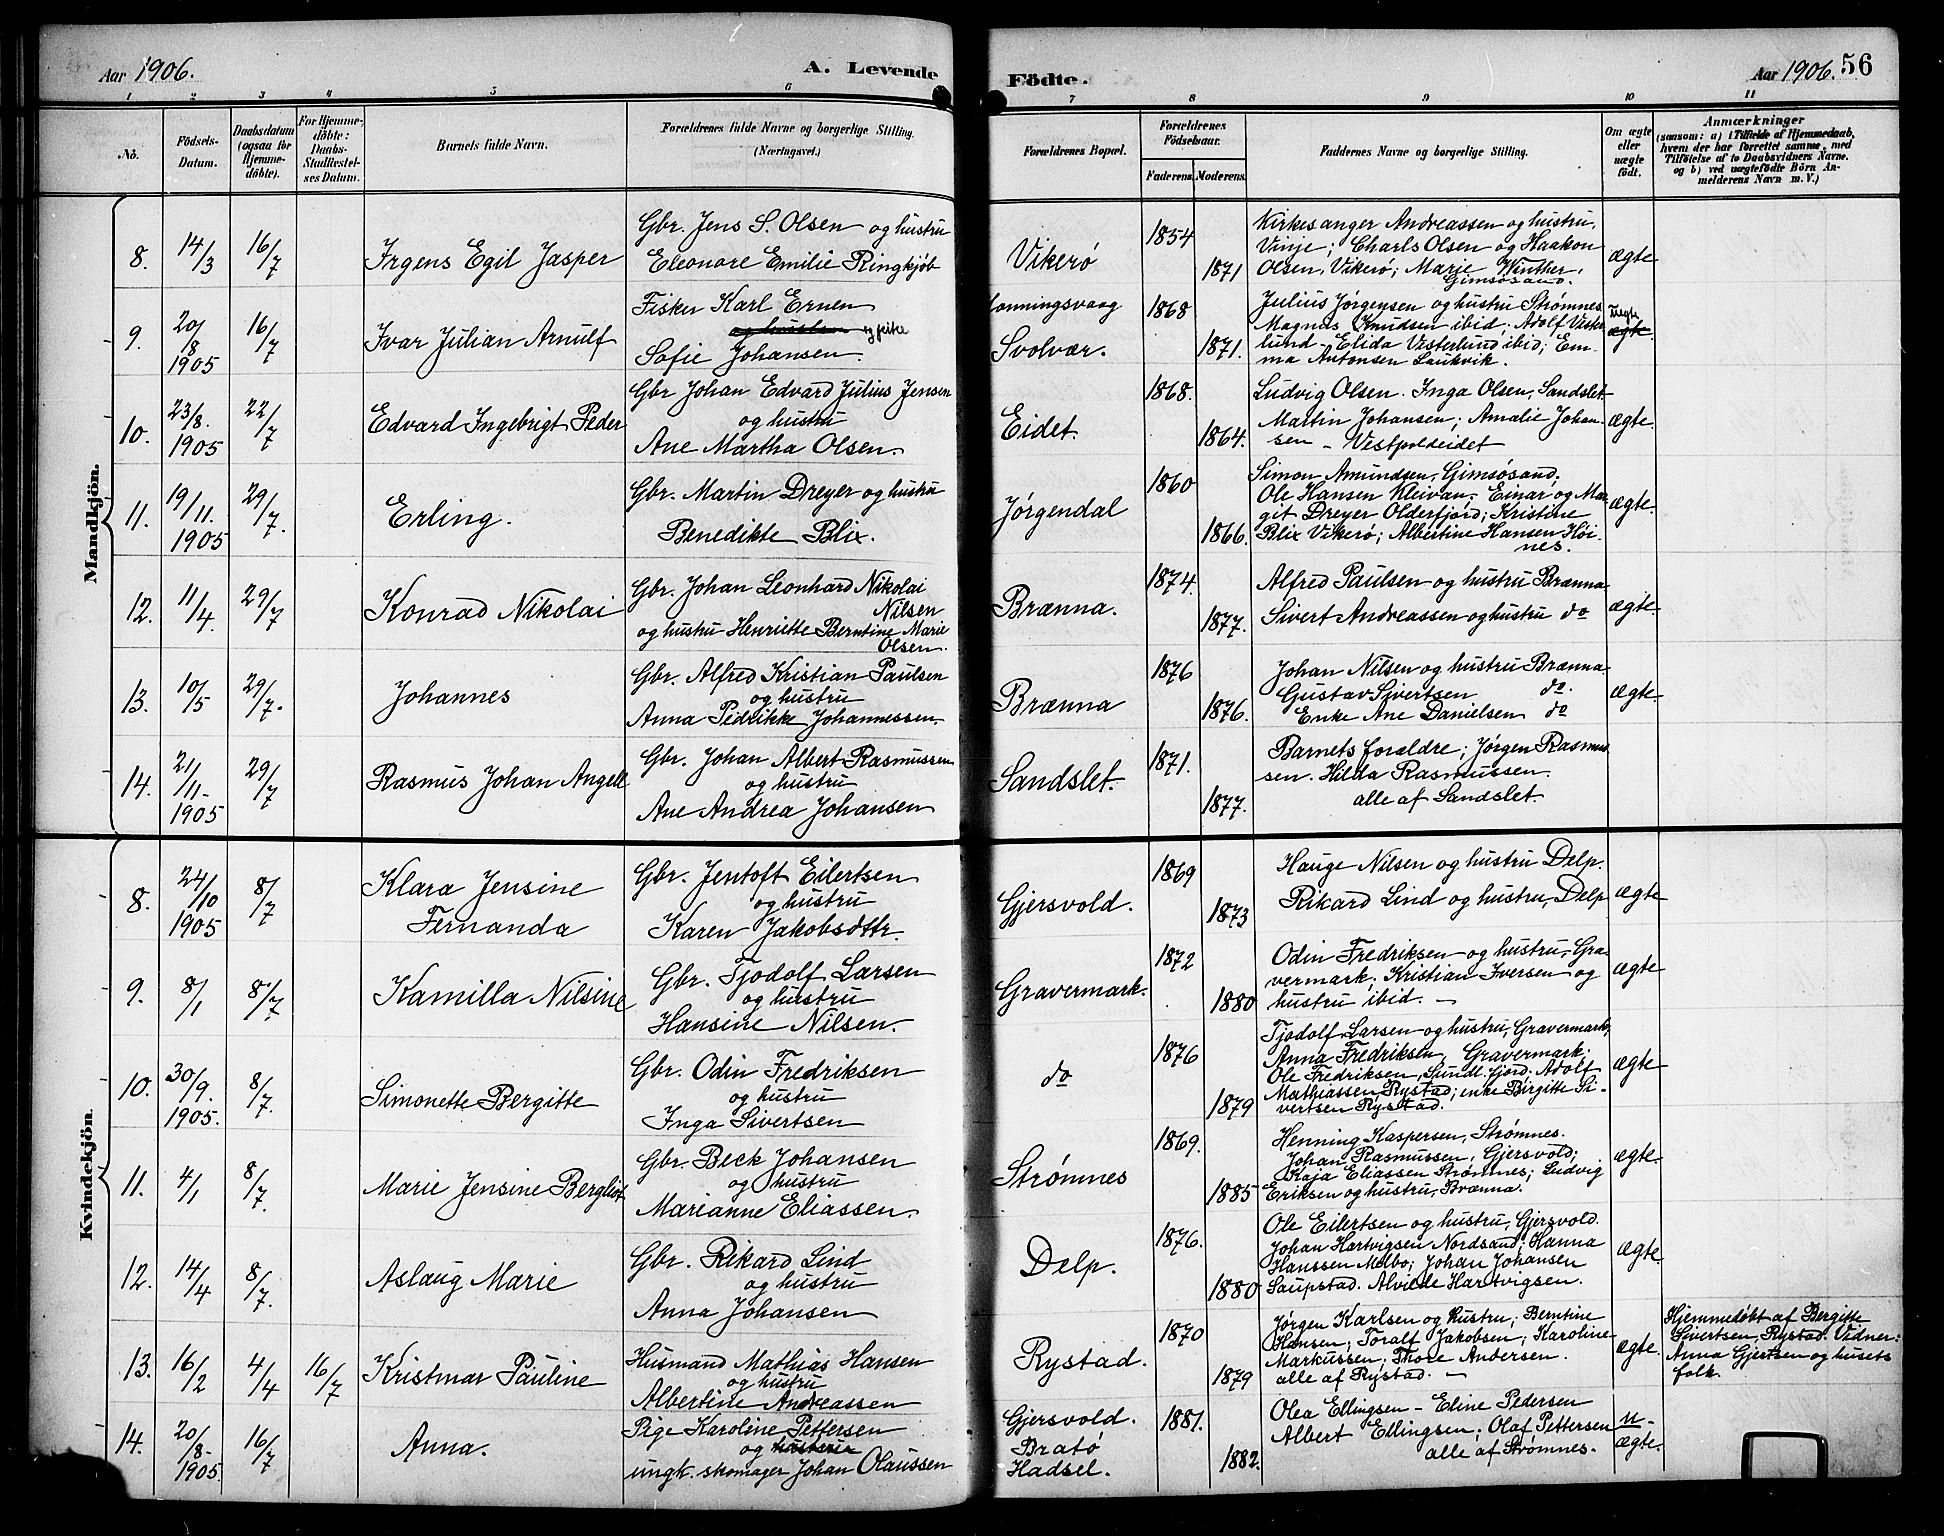 Aar 1906.
A. Levende
Födte.
Aar 1906. 56
1 2 3 4 5 6 7 8 9 10 11
No.
Födsels-
Datum.
Daabsdatum
(ogsaa for
Hjemme-
döbte).
For Hjemme-
döbte:
Daabs-
Stadfæstel-
ses Datum.
Barnets fulde Navn.
Forældrenes fulde Navne og borgerlige Stilling.
(Næringsvei.)
Forældrenes Bopæl.
Forældrenes
Födselsaar.
Faderens. Moderens.
Faddernes Navne og borgerlige Stilling.
Om ægte
eller
uægte
födt.
Anmærkninger
(saasom: a) i Tilfælde af Hjemmedaab,
hvem der har forrettet samme, med
Tilföielse af to Daabsvidners Navne.
og b) ved uægtefödte Börn An-
melderens Navn m. V.)
Mandkjön.
8. 14/3 16/7
Irgens Egil Jasper
Gbr. Jens S. Olsen og hustru
Eleonore Emilie Ringkjøb
Vikerø
1854
1871
Kirkesanger Andreassen og hustru,
Vinje; Charls Olsen og Haakon
Olsen, Vikerø; Marie Winther,
Gimsøsand.
ægte
9. 20/8 1905 16/7
Ivar Julian Arnulf
Fisker Karl Ernen
og hustru og pike
Sofie Johansen.
Honningsvaag
Svolvær.
1868
1871.
Julius Jørgensen og hustru Strømnes
Magnus Knudsen ibid; Adolf Vester
lund – Elida Vesterlund ibid; Em-
ma Antonsen Laukvik.
Uægte
ægte
10. 23/8. 1905 22/7
Edvard Ingebrigt Peder
Gbr Johan Edvard Julius Jensen
og hustru
Ane Martha Olsen.
Eidet.
1868.
1864.
Ludvig Olsen. Inga Olsen, Sandslet
Martin Johansen; Amalie Johan-
sen – Vestpoldeidet
ægte.
11. 19/11. 1905 29/7.
Erling.
Gbr. Martin Dreyer og hustru
Benedikte Blix.
Jørgendal
1860
1866.
Simon Amundsen, Gimsøsand;
Ole Hansen Kleivan. Einar og Mar
git Dreyer Olderfjord; Kristine
Blix Vikerø; Albertine Hansen Høi-
nes.
ægte.
12. 11/4. 29/7
Konrad Nikolai
Gbr. Johan Leonhard Nikolai
Nilsen
og hustru Henriette Berntine Marie
Olsen.
Brænna.
1874.
1877.
Alfred Paulsen og hustru Brænna
Sivert Andreassen og hustru do
ægte.
13. 10/5 29/7.
Johannes
Gbr. Alfred Kristian Paulsen
og hustru
Anna Pedrikke Johannessen.
Brænna
1876
1876.
Johan Nilsen og hustru Brænna
Gustav Sivertsen do.
Enke Ane Danielsen do
ægte.
14. 21/11. 1905 29/7
Rasmus Johan Angell
Gbr. Johan Albert Rasmussen
og hustru
Ane Andrea Johansen
Sandslet.
1871.
1877.
Barnets forældre; Jørgen Rasmus
sen. Hilda Rasmussen.
alle af Sandslet.
Kvindekjön.
8. 24/10 1905 8/7
Klara Jensine
Fernanda
Gbr. Jentoft Eilertsen
og hustru
Karen Jakobsdttr.
Gjersvold.
1869
1873
Hauge Nilsen og hustru Delp.
Rikard Lind og hustru, Delp
ægte
9. 8/1 8/7
Kamilla Nilsine
Gbr. Tjodolf Larsen
og hustru
Hansine Nilsen.
Gravermark.
1872
1880
Odin Fredriksen og hustru, Gra-
vermark; Kristian Iversen og
hustru ibid. –
ægte
10. 30/9. 1905. 8/7.
Simonette Bergitte
Gbr. Odin Fredriksen
og hustru
Inga Sivertsen
do
1876
1879
Tjodolf Larsen og hustru, Gravermark;
Anna Fredriksen, Gravermark;
Ole Fredriksen, Sundl.fjord; Adolf
Mathiassen Rystad; enke Birgitte Si-
vertsen Rystad.
ægte
11. 4/1 8/7.
Marie Jensine Bergliot
Gbr. Beck Johansen
og hustru
Marianne Eliassen.
Strømnes
1869.
1885
Henning Kaspersen, Strømnes.
Johan Rasmussen, Gjersvold;
Kaja Eliassen Strømnes; Ludvig
Eriksen og hustru, Brænna.
ægte.
12. 14/4 8/7.
Aslaug Marie
Gbr. Rikard Lind
og hustru
Anna Johansen
Delp.
1876.
1880
Ole Eilertsen og hustru, Gjersvold.
Johan Hartvigsen Nordsand; Hanna
Hanssen Melbo; Johan Johansen
Saupstad. Alvilde Hartvigsen.
ægte.
13. 16/2 4/4 16/7
Kristmar Pauline
Husmand Mathias Hansen
og hustru
Albertine Andreassen
Rystad.
1870
1879
Jørgen Karlsen og hustru; Berntine
Hansen; Toralf Jakobsen; Karoline
Markussen; Thore Andersen.
alle af Rystad. –
ægte
Hjemmedøbt af Bergitte
Sivertsen, Rystad. Vidner:
Anna Gjertsen og husets
folk.
14. 20/8- 1905 16/7
Anna.
Pige Karoline Pettersen
og hustru
ungk. skomager Johan Olaussen
Gjersvold.
Bratø
Hadsel.
1881.
1882.
Olea Ellingsen – Eline Pedersen
Albert Ellingsen; Olaf Pettersen
alle af Strømnes.
u-
ægte.